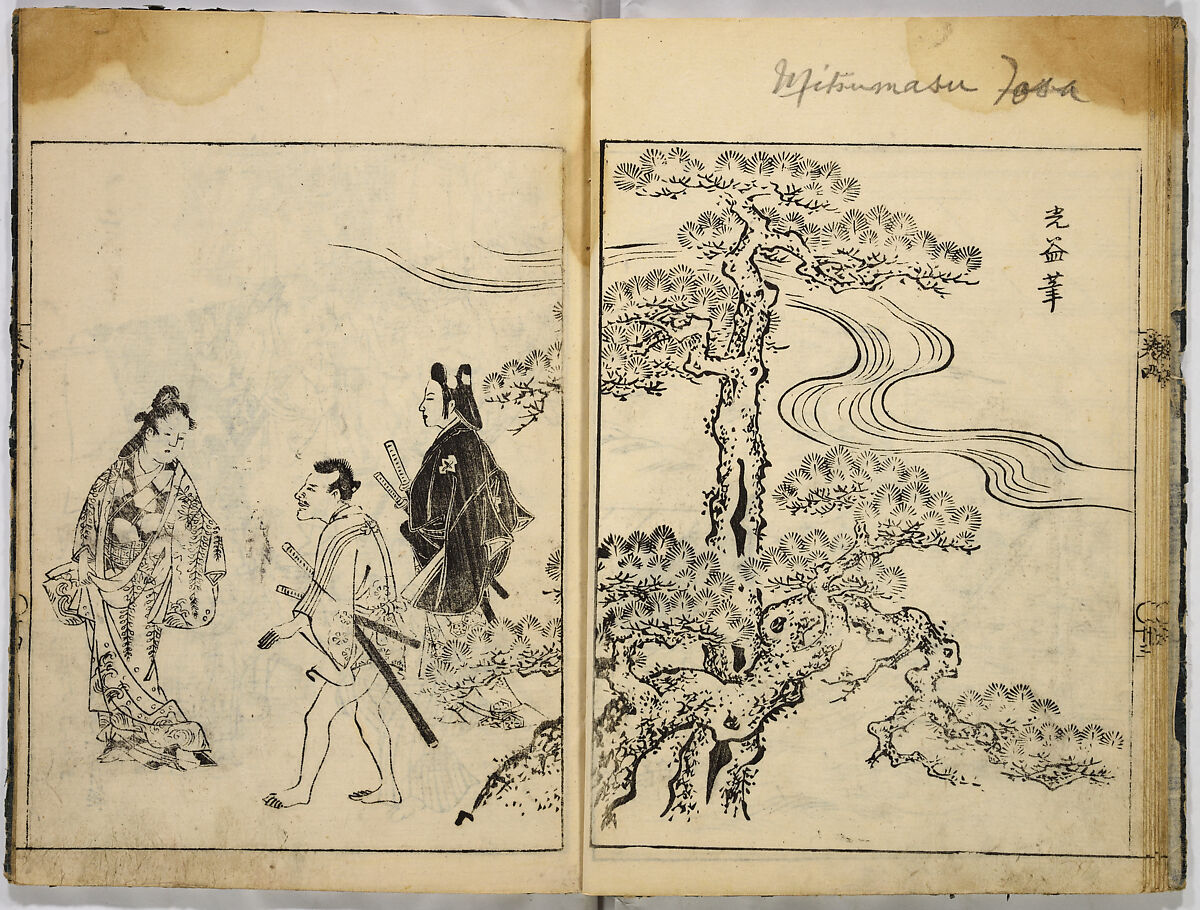 Mitsumasu Tosa
光益筆